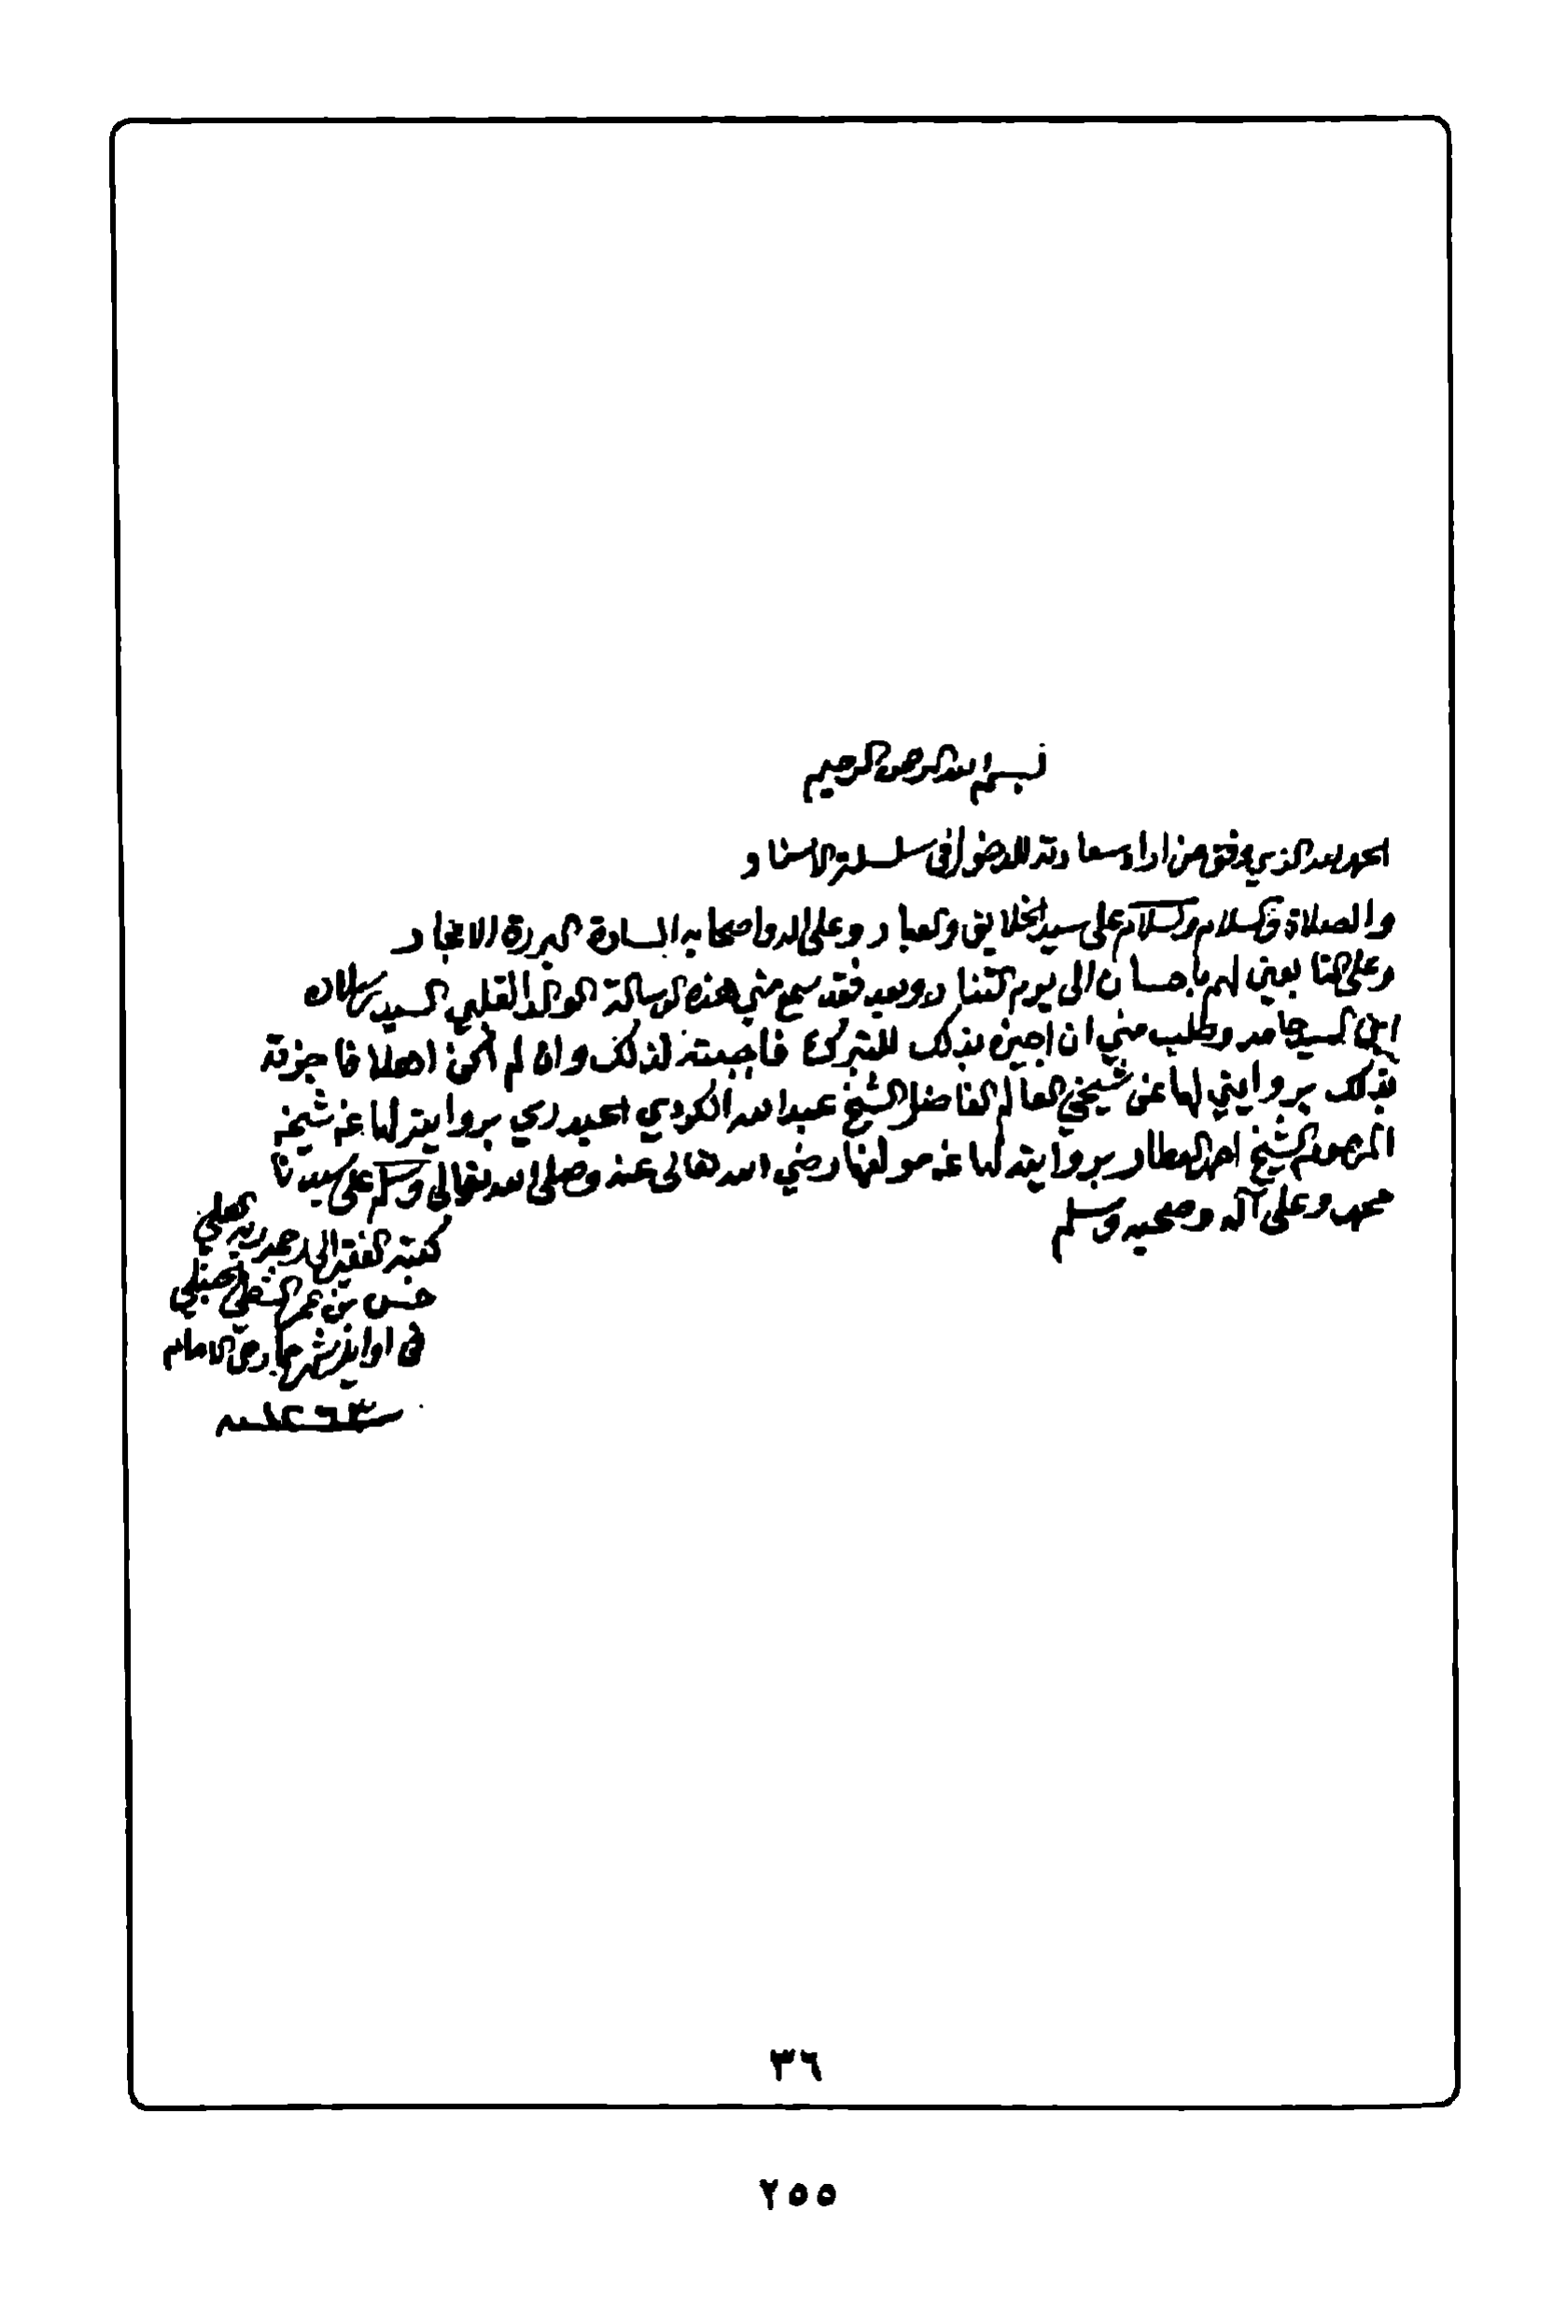 بسم الله الرحمن الرحيم
الحمد لله الذي وفق من اراد سعادته للدخول في سلسلة الاسناد
والصلاة والسلام على سيد الخلايق والعباد وعلى اله واصحابه السادة البررة الانجاد
وعلى التابعين لهم باحسان الى يوم التناد وبعد فقد سمع مني هذه الرسالة الولد القلبي السيد
ابن السيد حامد وطلب مني ان اجيزه بذلك للتبرك فاجبته لذلك وان لم اكن اهلا فاجزته
بذلك بروايتي لها عن شيخي العالم الفاضل الشيخ عبد الله الكردي الحيدري بروايته لها عن شيخه
المرحوم الشيخ احمد العطار بروايته لها عن مولفها رضي الله تعالى عنه وصلى الله تعالى وسلم على سيدنا
محمد وعلى آله وصحبه وسلم
كتبه الفقير الى رحمة ربه العلي
حسن بن عمر الشطي الحنبلي
في اواخر شهر جمادى
٣٦
٢٥٥